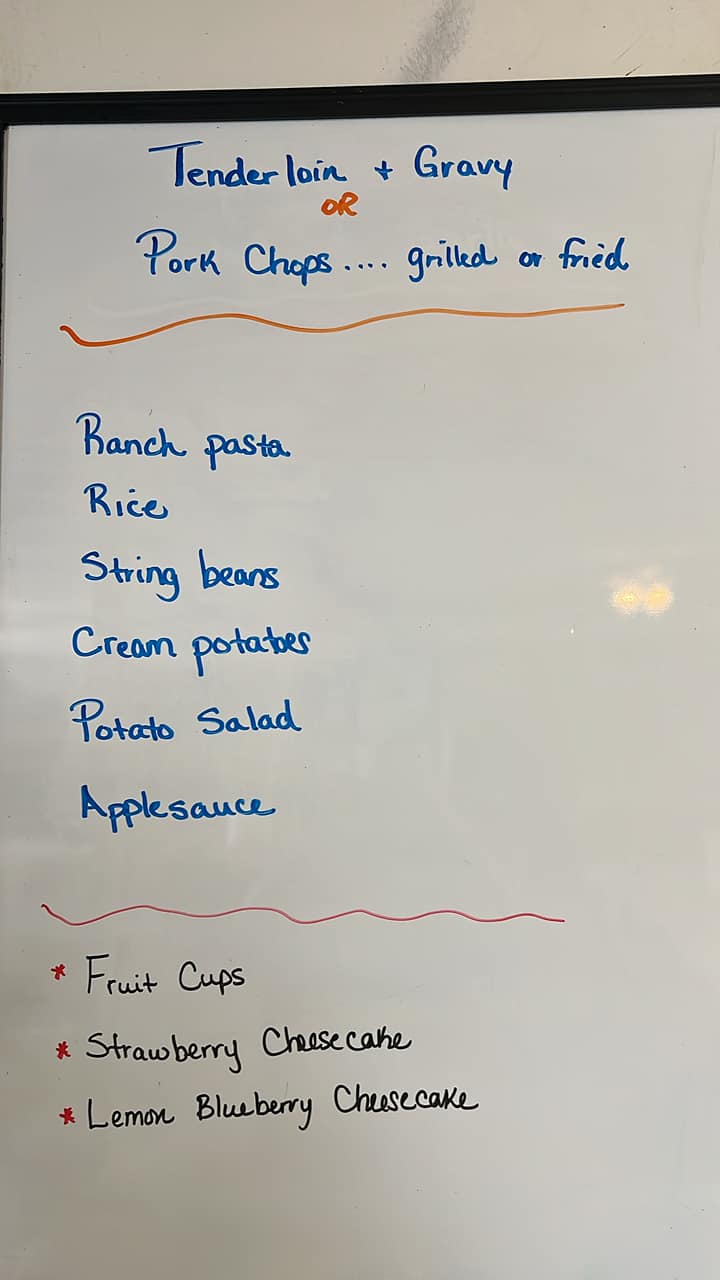 Tenderloin + Gravy
OR
Pork Chops.... grilled or fried
Ranch pasta
Rice
String beans
Cream potatoes
Potato Salad
Applesauce
* Fruit Cups
* Strawberry Cheesecake
* Lemon Blueberry Cheesecake